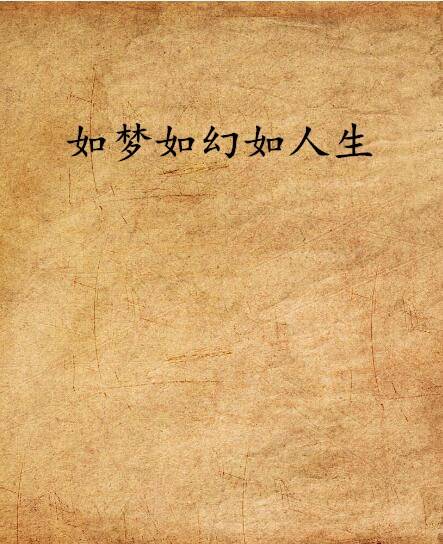 如梦如幻如人生